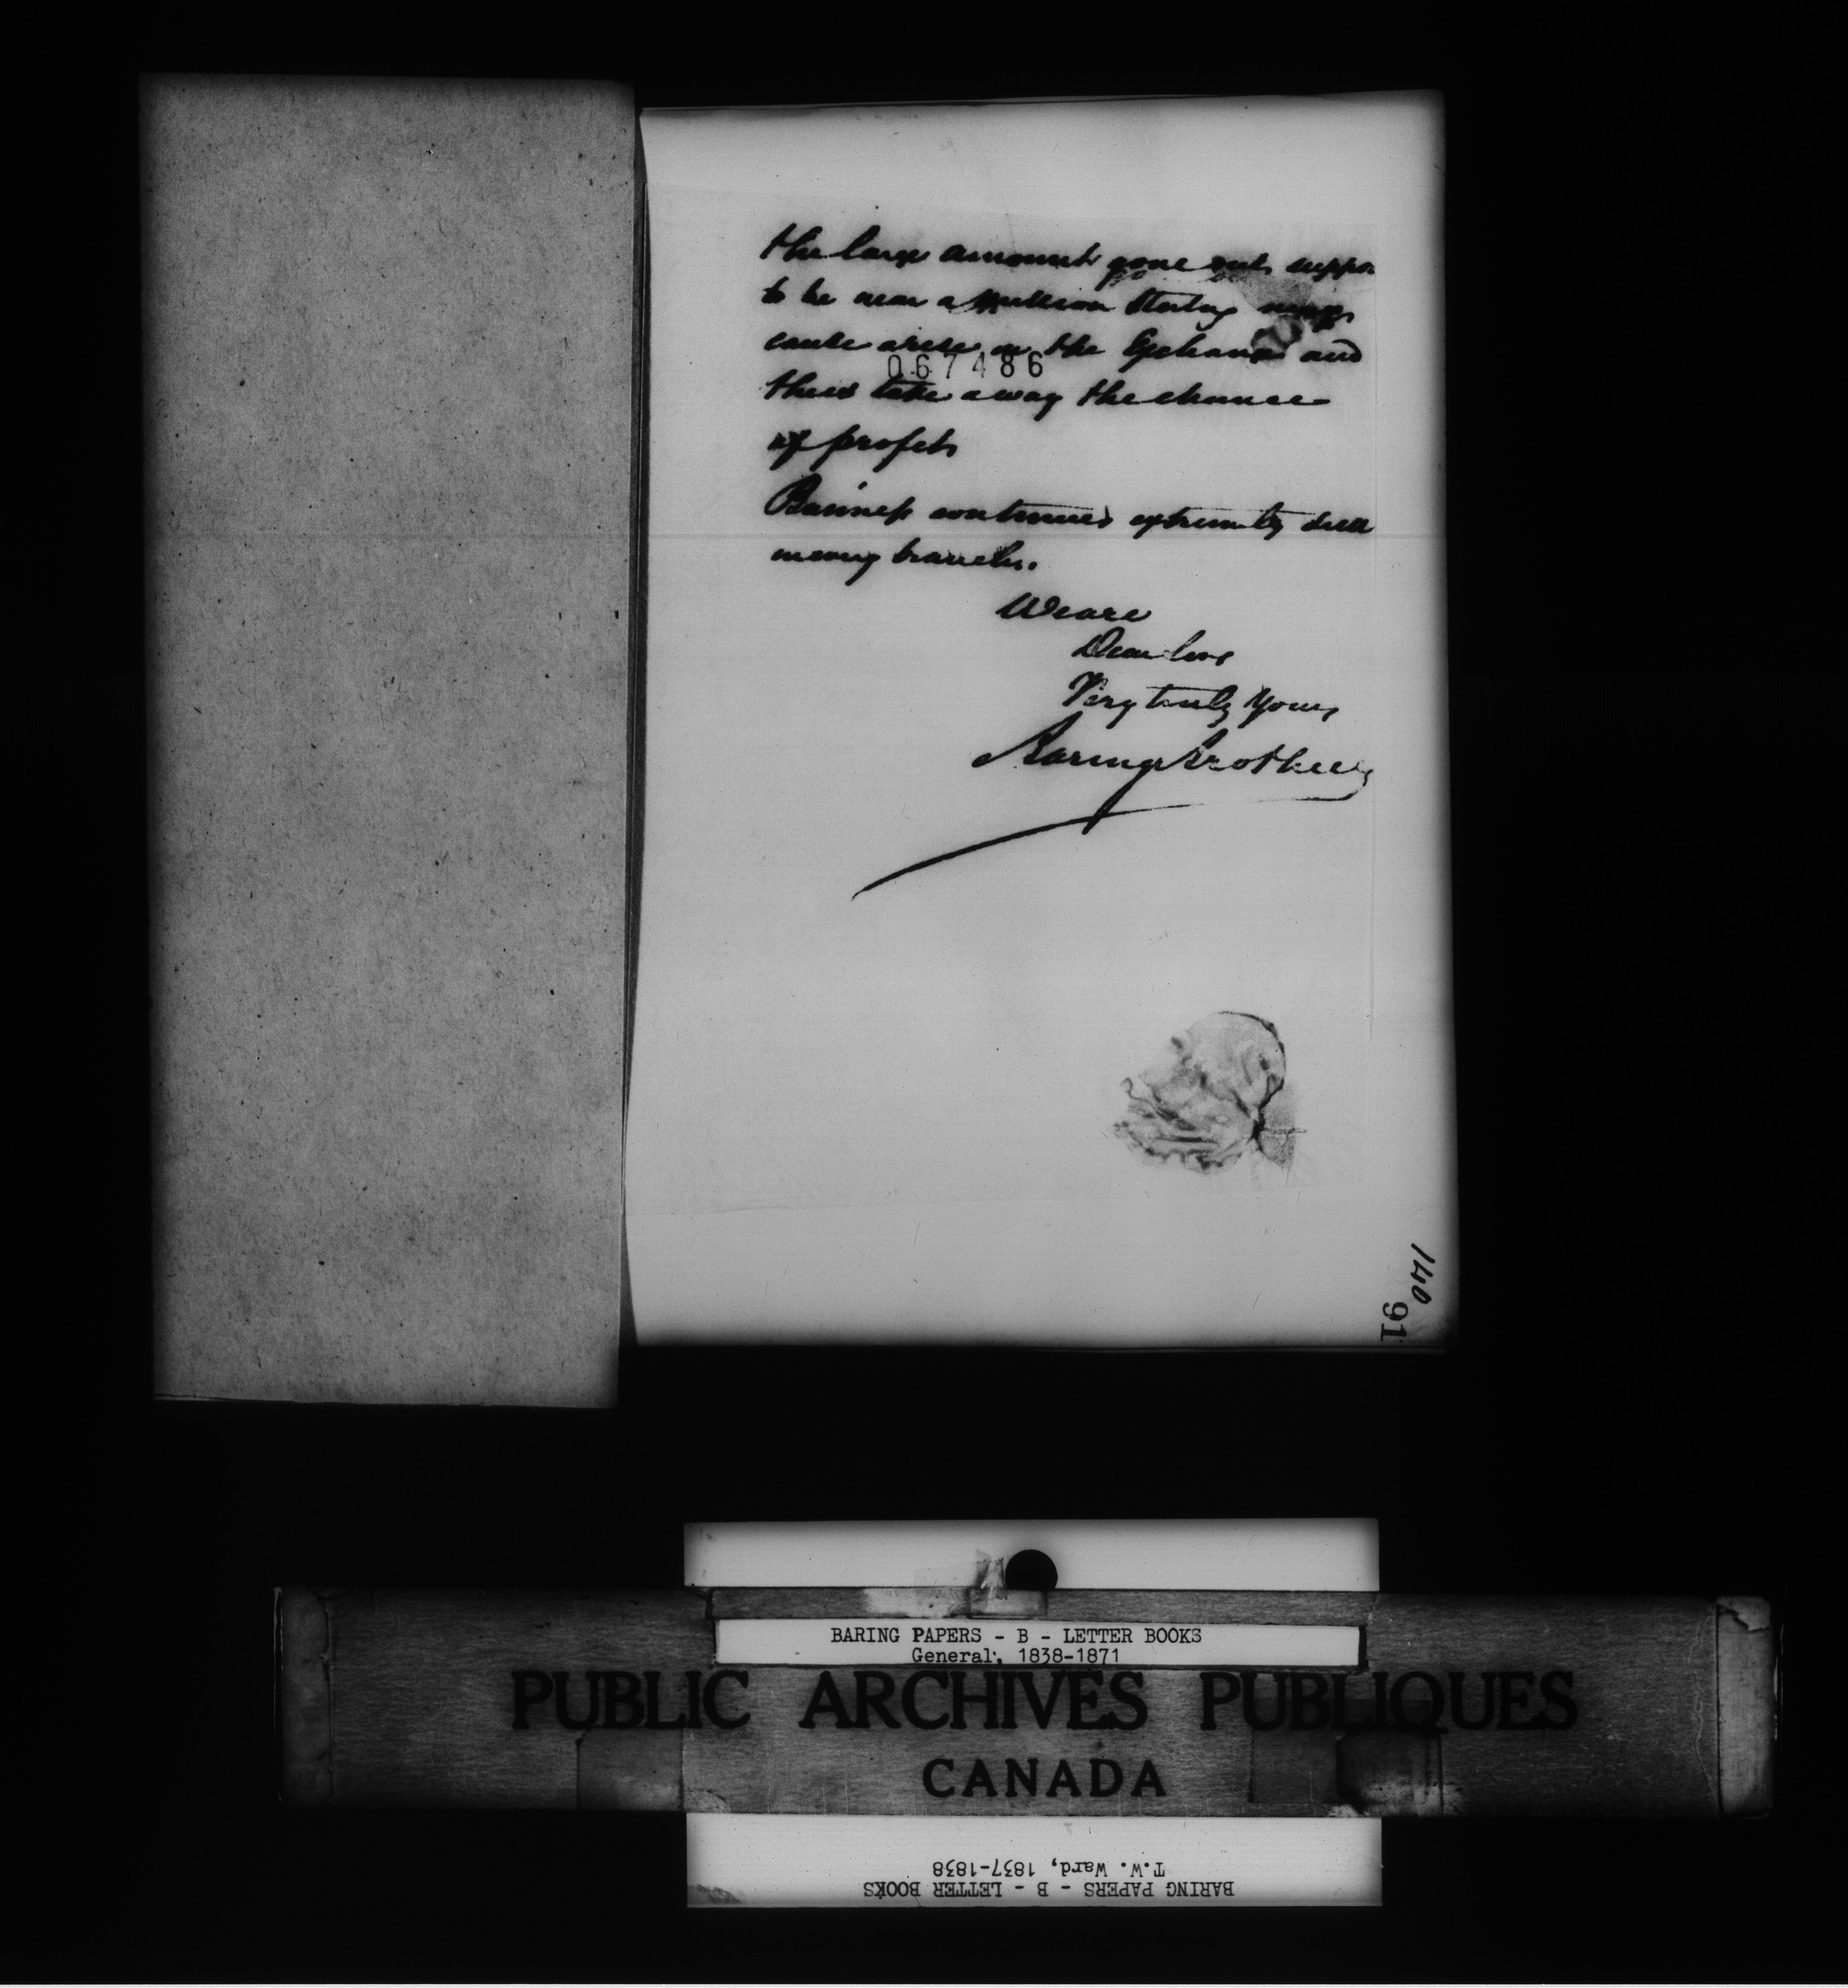 the large amount gone out, suppo
to be near a Million Sterling may
cause a rise in the Exchange and
067486
thus take away the chance
of profit
Business continues extremely dull
in every branch.
We are
Dear Sirs
Very truly Yours
Baring Brothers
140
91
BARING PAPERS - B - LETTER BOOKS
General, 1838-1871
PUBLIC ARCHIVES PUBLIQUES
CANADA
T.W. Ward, 1837-1838
BARING PAPERS - B - LETTER BOOKS